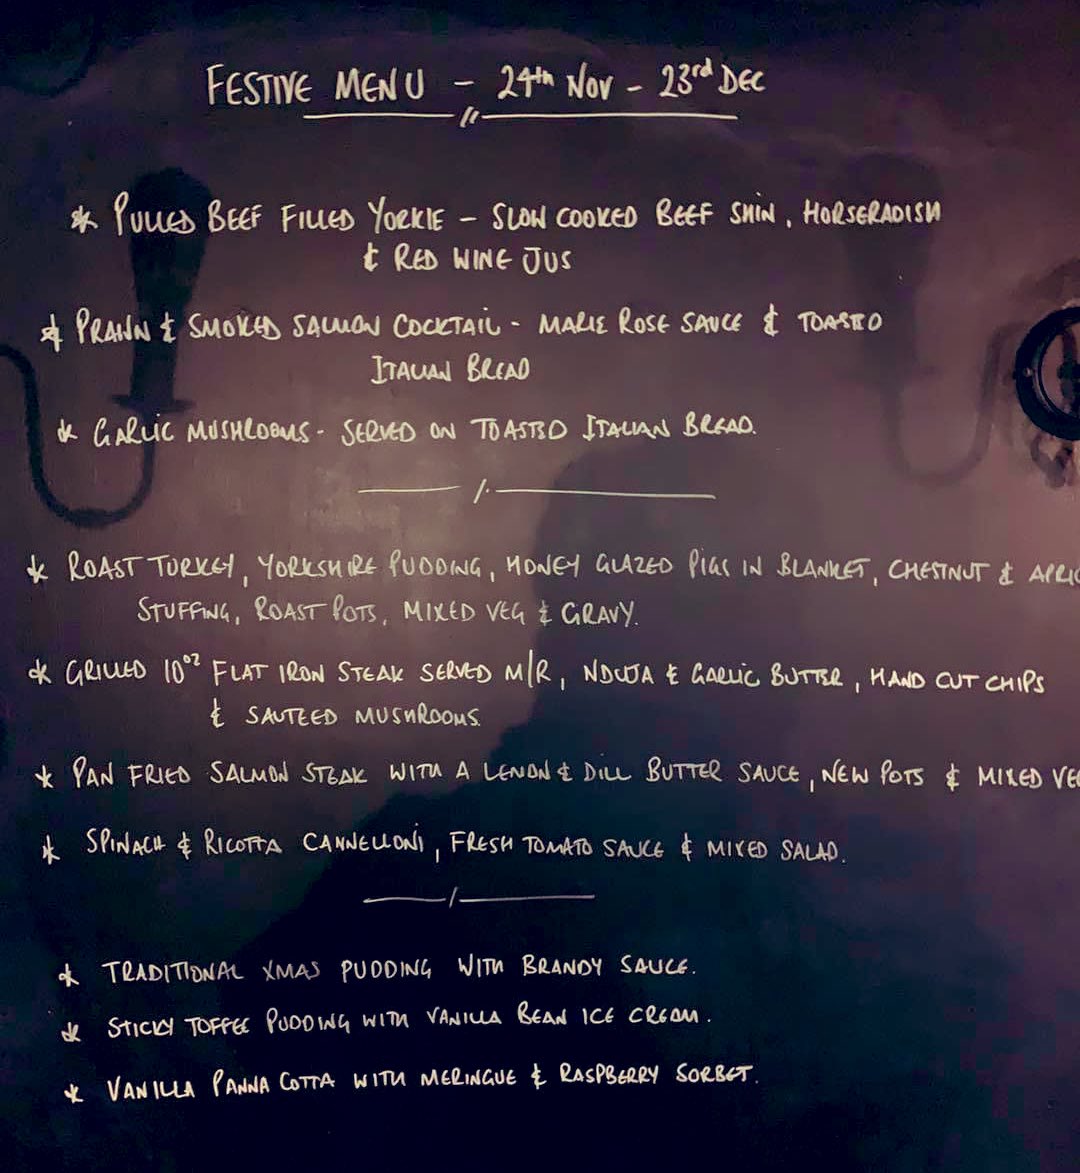 FESTIVE MENU - 24th NOV - 23rd DEC
* PULLED BEEF FILLED YORKIE - SLOW COOKED BEEF SHIN, HORSERADISH
& RED WINE JUS
* PRAWN & SMOKED SALMON COCKTAIL - MARIE ROSE SAUCE & TOASTED
ITALIAN BREAD
* GARLIC MUSHROOMS - SERVED ON TOASTED ITALIAN BREAD.
* ROAST TURKEY, YORKSHIRE PUDDING, HONEY GLAZED PIGS IN BLANKET, CHESTNUT & APRIC
STUFFING, ROAST POTS, MIXED VEG & GRAVY.
* GRILLED 10oz FLAT IRON STEAK SERVED M/R, NDUJA & GARLIC BUTTER, HAND CUT CHIPS
& SAUTEED MUSHROOMS.
* PAN FRIED SALMON STEAK WITH A LEMON & DILL BUTTER SAUCE, NEW POTS & MIXED VEG
* SPINACH & RICOTTA CANNELLONI, FRESH TOMATO SAUCE & MIXED SALAD.
* TRADITIONAL XMAS PUDDING WITH BRANDY SAUCE.
* STICKY TOFFEE PUDDING WITH VANILLA BEAN ICE CREAM.
* VANILLA PANNA COTTA WITH MERINGUE & RASPBERRY SORBET.